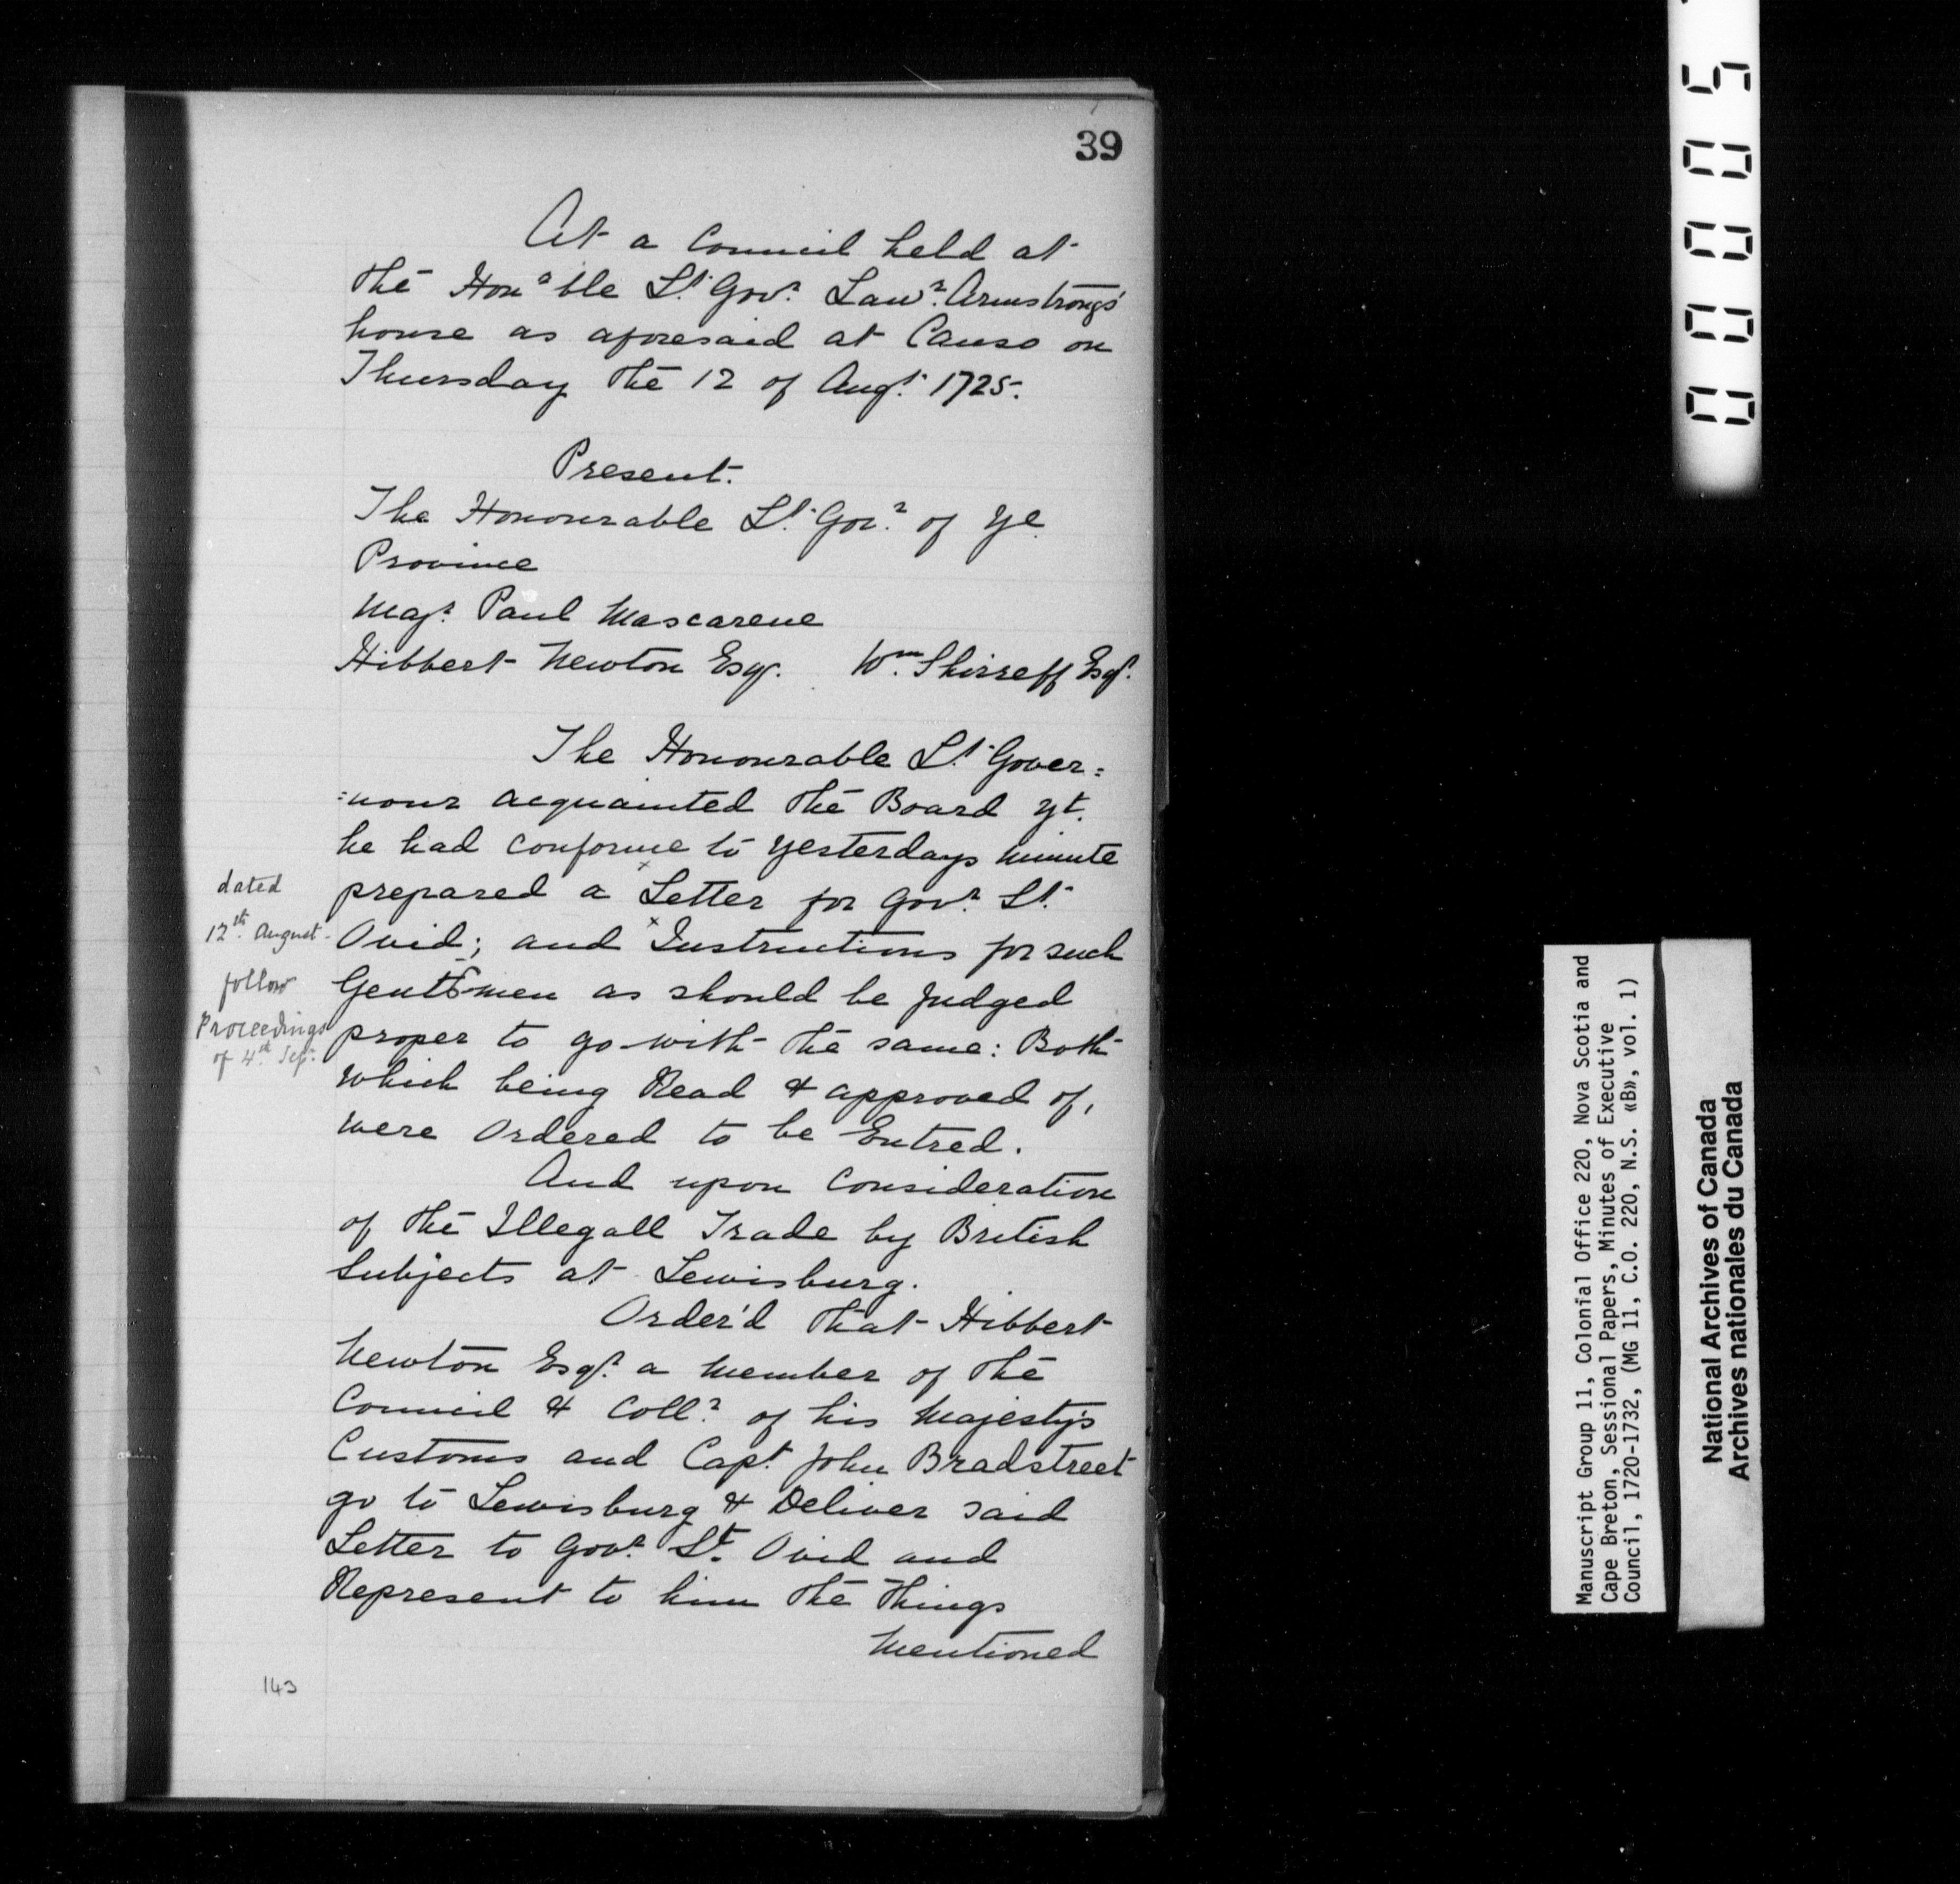 39
At a Council held at
the Hon^a ble L^t. Gov^r. Law^r. Armstrong's
house as aforesaid at Canso on
Thursday the 12 of Aug^t. 1725.
Present.
The Honourable L^t. Gov^r. of ye
Province
Maj^r. Paul Mascarene
Hibbert Newton Esq^r. W^m. Shirreff Esq^r.
The Honourable L^t. Gover=
=nour acquainted the Board yt.
he had conforme to yesterdays minute
prepared a × Letter for Gov^r. S^t.
Ovid; and × Instructions for such
Gentlemen as should be judged
proper to go with the same: Both
which being Read & approved of,
were Ordered to be Entred.
dated
12^th. August
follow
Proceedings
of 4^th Sep^r.
And upon Consideration
of the Illegall Trade by British
Subjects at Lewisburg.
Order'd that Hibbert
Newton Esq^r. a Member of the
Council & Coll^r. of his Majesty's
Customs and Cap^t. John Bradstreet
go to Lewisburg & Deliver said
Letter to Gov^r. S^t. Ovid and
Represent to him the things
Mentioned
143
00005
Manuscript Group 11, Colonial Office 220, Nova Scotia and
Cape Breton, Sessional Papers, Minutes of Executive
Council, 1720-1732, (MG 11, C.O. 220, N.S. «B», vol. 1)
National Archives of Canada
Archives nationales du Canada